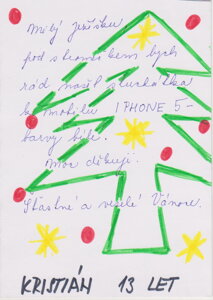 Milý Ježíšku
pod stromečkem bych
rád našel sluchátka
k mobilu IPHONE 5-
barvy bílé.
Moc děkuji.
Šťastné a veselé Vánoce.
KRISTIÁN 13 LET